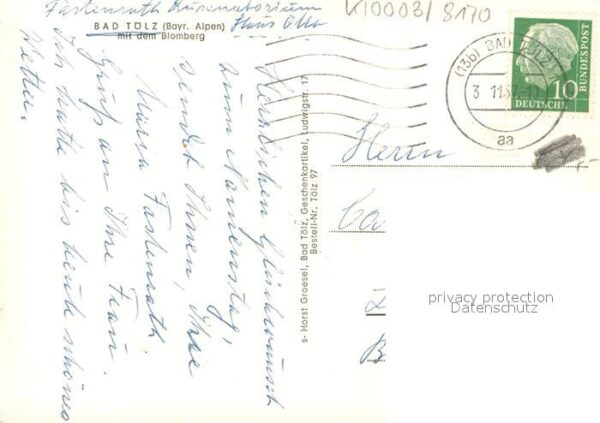 Fastenrath Kursanatorium
Haus Otto
BAD TÖLZ (Bayr. Alpen)
mit dem Blomberg
K10003/8170
Herzlichen Glückwunsch
zum Namenstag,
sendet Ihnen, Ihre
Maria Fastenrath
Gruß an Ihre Frau.
Ich hatte bis heute schönes
Wetter.
s- Horst Groesel, Bad Tölz, Geschenkartikel, Ludwigstr. 17
Bestell-Nr. Tölz 97
(13b) BAD TÖLZ 1
3 11.57
aa
10
DEUTSCHE
BUNDESPOST
Herrn
Ca
B
privacy protection
Datenschutz